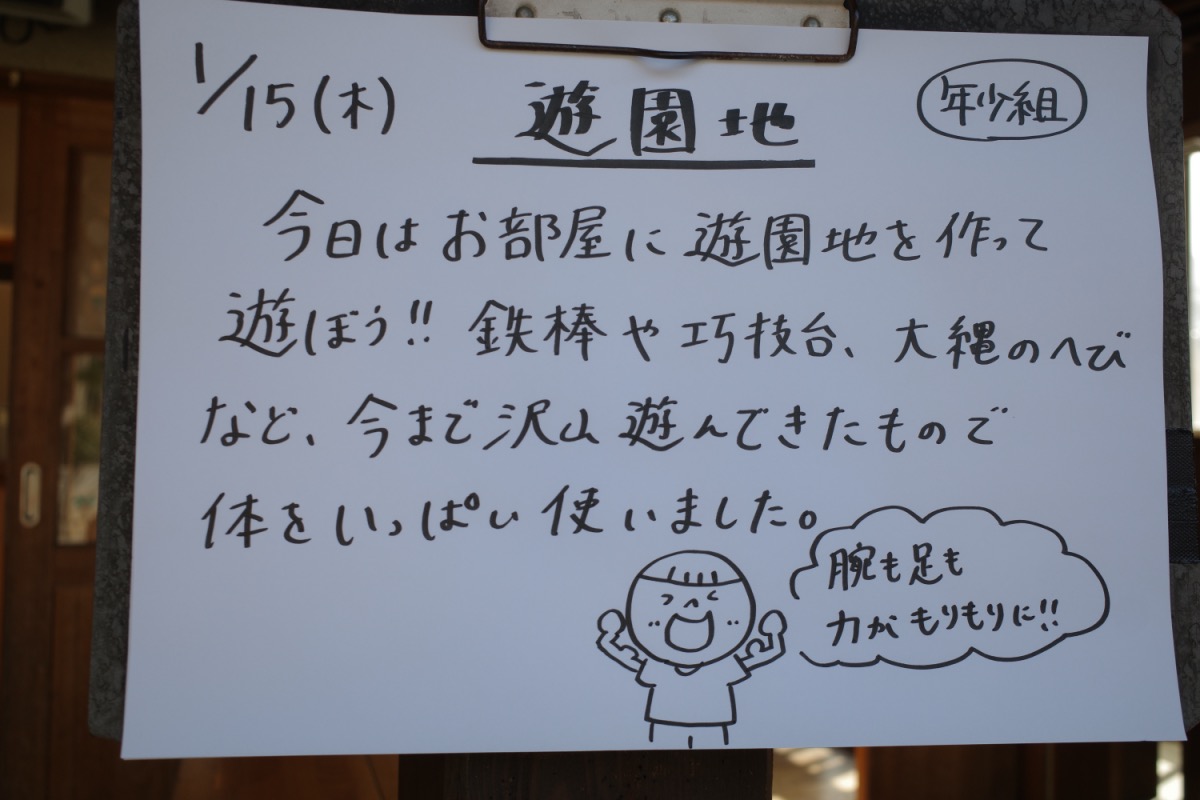 1/15(木)
遊園地
年少組
今日はお部屋に遊園地を作って
遊ぼう!! 鉄棒や巧技台、大縄のへび
など、今まで沢山遊んできたもので
体をいっぱい使いました。
腕も足も
力がもりもりに!!